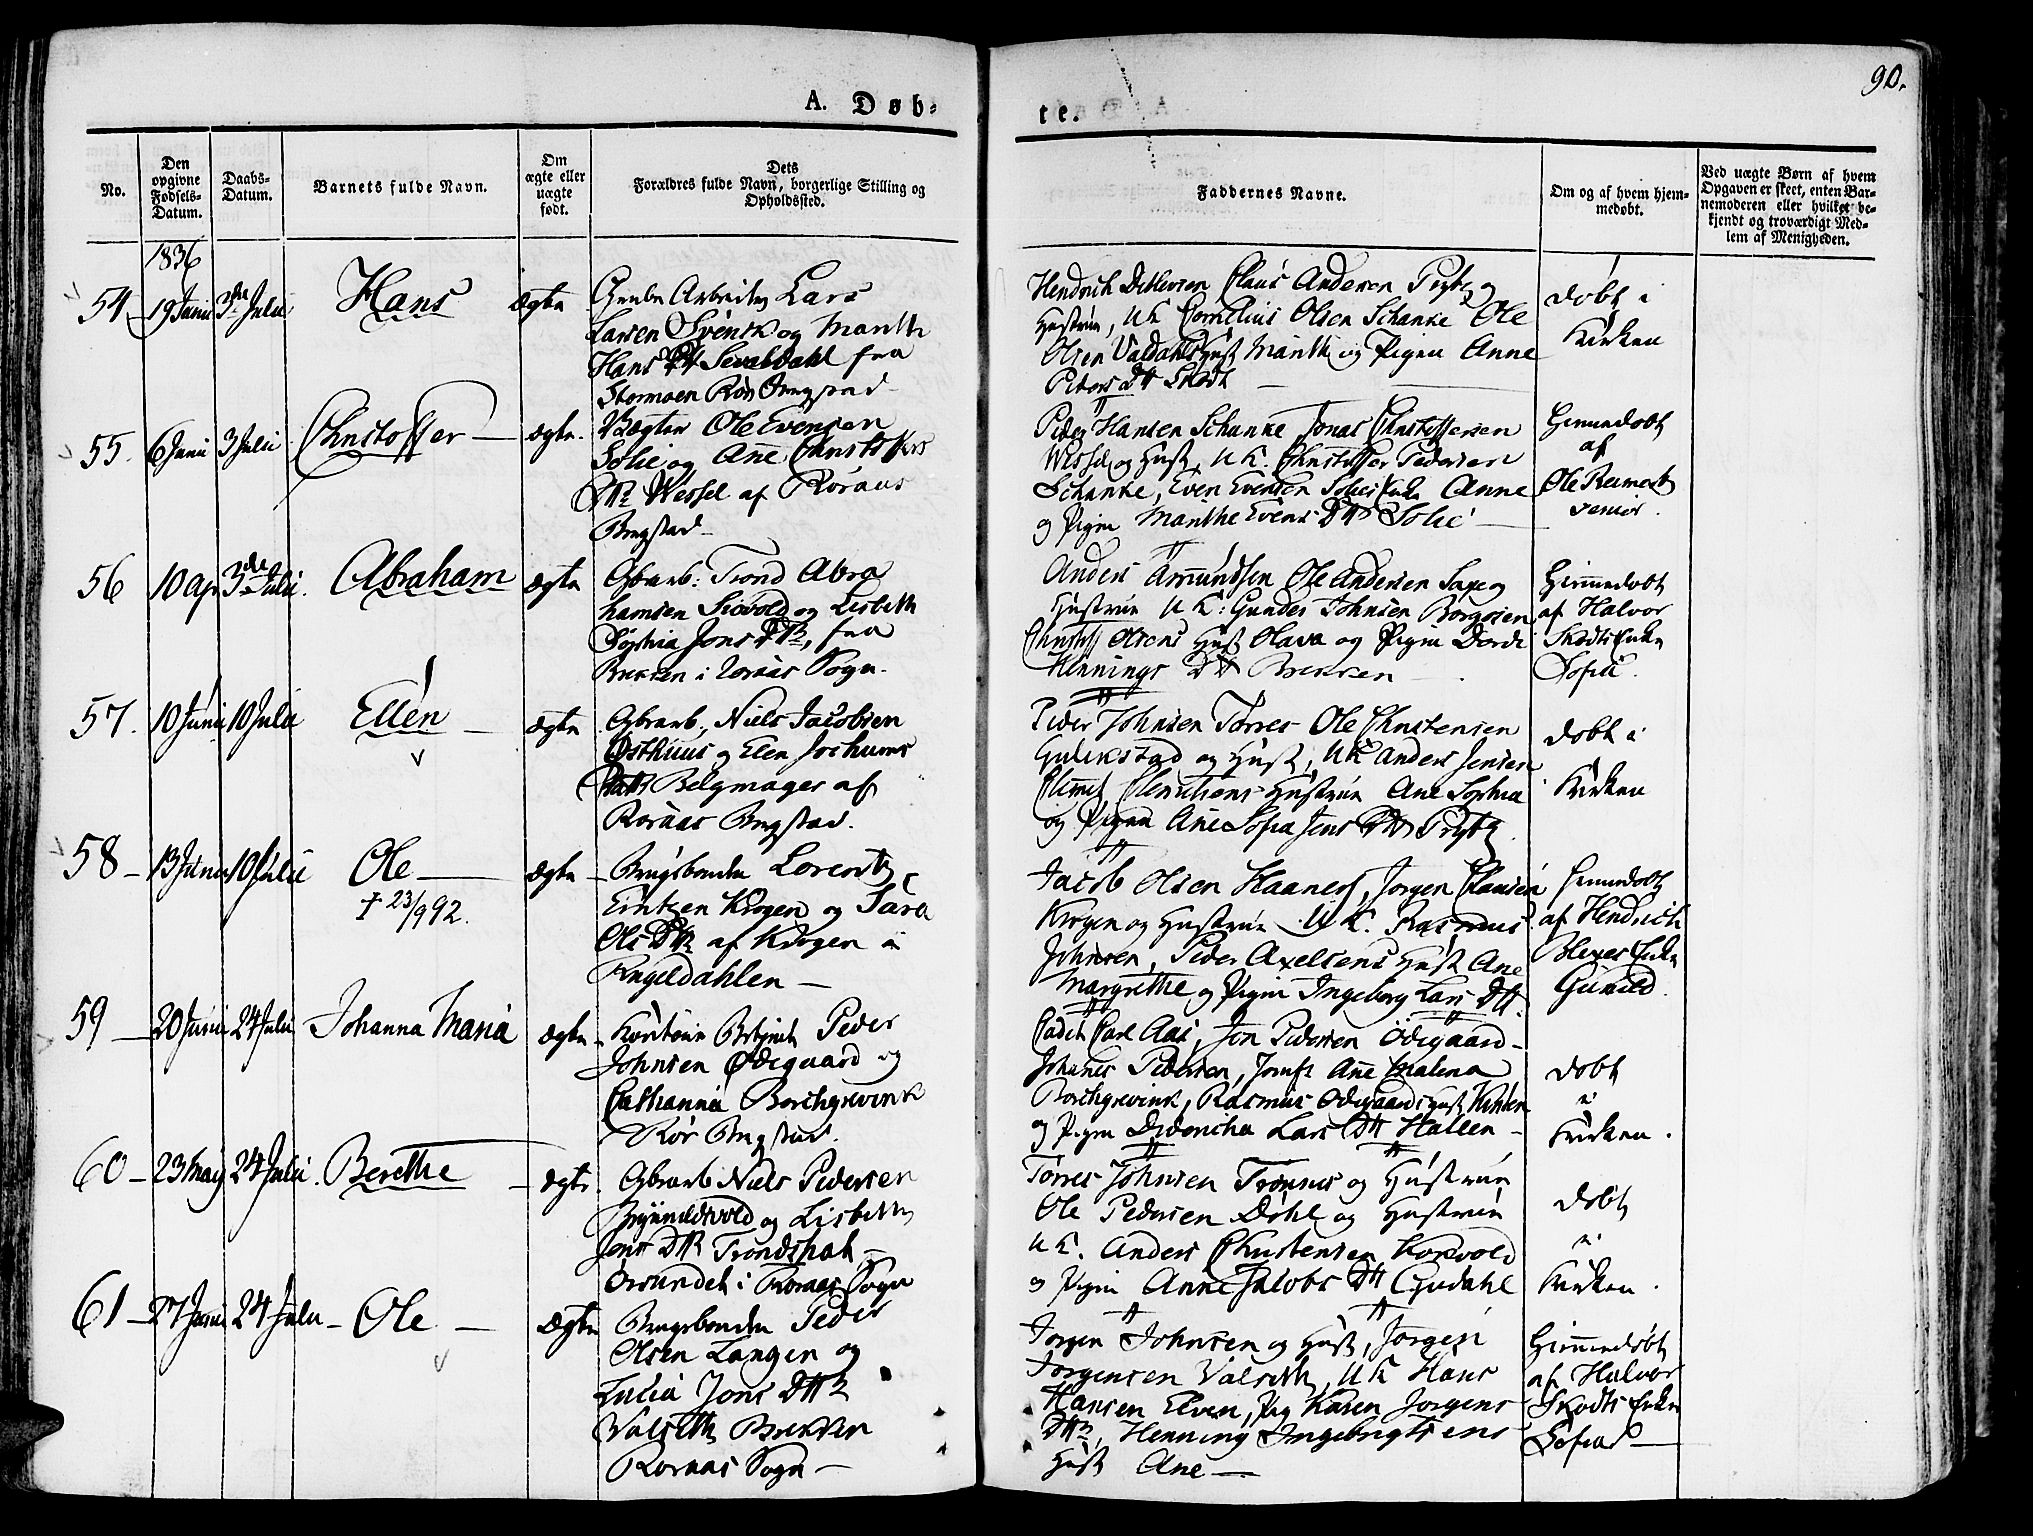 90.
A. Døb-
te.
No.
Den opgivne Fødsels-Datum.
Daabs-Datum.
Barnets fulde Navn.
Om ægte eller uægte født.
Dets Forældres fulde Navn, borgerlige Stilling og Opholdssted.
Faddernes Navne.
Om og af hvem hjemmedøbt.
Ved uægte Børn af hvem Opgaven er skeet, enten Barnemoderen eller hvilket bekjendt og troværdigt Medlem af Menigheden.
1836
54 19 Juni 3die Julii Hans Ægte
Grube Arbeider Lars
Larsen Svensk og Marith
Hans Dtr Sevaldahl fra
Stormoen Rør Bergstad
Hendrich Detlevsen Claus Andersen Prytz og
Hustrue, UK Cornelius Olsen Schanke Ole
Olsen Valdahls Hust Marith og Pigen Anne
Peters Dtr Skodt
døbt i
Kirken
55. 6 Juni 3 Julii Christoffer ægte.
Vægter Ole Evensen
Solie og Ane Christoffers
Dtr Wessel af Røraas
Bergstad
Peder Hansen Schanke, Jonas Christoffersen
Wessel og Hust, UK. Christoffer Pedersen
Schanke, Even Evensen Solies Enke Anne
og Pigen Marithe Evens Dtr Solie
Hjemmedøbt
af
Ole Reimert
senior.
56 10 Apr 3de Julii. Abraham ægte
Grbarb: Trond Abra
hamsen Siovold og Lisbeth
Sophia Jons Dtr, fra
Brekken i Roraas Sogn.
Anders Amundsen Ole Andersen og
Hustrue UK: Gunder Johnsen Borgosen
Christoff Olsens Hust Olava og Pigen Dordi
Hennings Dtr Brekken
Hjemmedøbt
af Halvor
Skodts Enke
Sofie.
57. 10 Juni 10 Julii Ellen ægte
Grbarb, Niels Jacobsen
Østhuus og Elen Jochums
Dattr Belgmager af
Roraas Bergstad.
Peder Johnsen Torres Ole Christensen
Gulikstad og Hust, UK Anders Jensen
Clemet Clemetsens Hustrue Ane Sophia
og Pigen Ane Sofia Jens Dtr Prytz
døbt i
Kirken
58 13 Juni 10 Julii Ole ægte
† 23/9 92.
Brugsbonden Lorentz
Eintzen Krogen og Sara
Ols Dtr af Krogen i
Rugeldahlen
Jacob Olsen Haanes, Jørgen Clausen
Krogen og Hustrue UK. Rasmus
Johnsen, Peder Axelsens Hust Ane
Margrethe og Pigen Ingeborg Lars Dtr.
Hjemmedøbt
af Hendrich
Enke
Gunild.
59 20 Junii 24 Julii Johanna Maria ægte
Peder
Johnsen Ødegaard og
Cathanna Borchgrevink
Rør Bergstad.
Cadet Carl Aas, Jon Pedersen Ødegaard
Johanes Pedersen, Jomfr Ane Malena
Borchgrevink, Rasmus Odegaards Hust Kirsten
og Pigen Didericha Lars Dtr Hallen
døbt
i
Kirken.
60 23 May 24 Julii. Berethe ægte.
Grbarb Niels Pedersen
Brynildsvold og Lisbeth
Jons Dtr Trondshal
Orsundet i Roraas Sogn
Torres Johnsen Tronnes og Hustrue
Ole Pedersen Dohl og Hustrue
UK. Anders Christensen Korsvold
og Pigen Anne Jacobs Dtr Gjedahl
døbt
i
Kirken.
61 27 Junii 24 Julii Ole Ægte
Brugsbonden Peder
Olsen Langen og
Lucia Jons Dtr
Valseth Brekken
Roraas Sogn
Jorgen Johnsen og Hust, Jørgen
Jorgensen Valseth, UK Hans
Hansen Elven, Pig Karen Jorgens
Dtr, Henning Ingebrigtsens
Hust Ane
Hjemmedøbt
af Halvor
Skodts Enke
Sofia